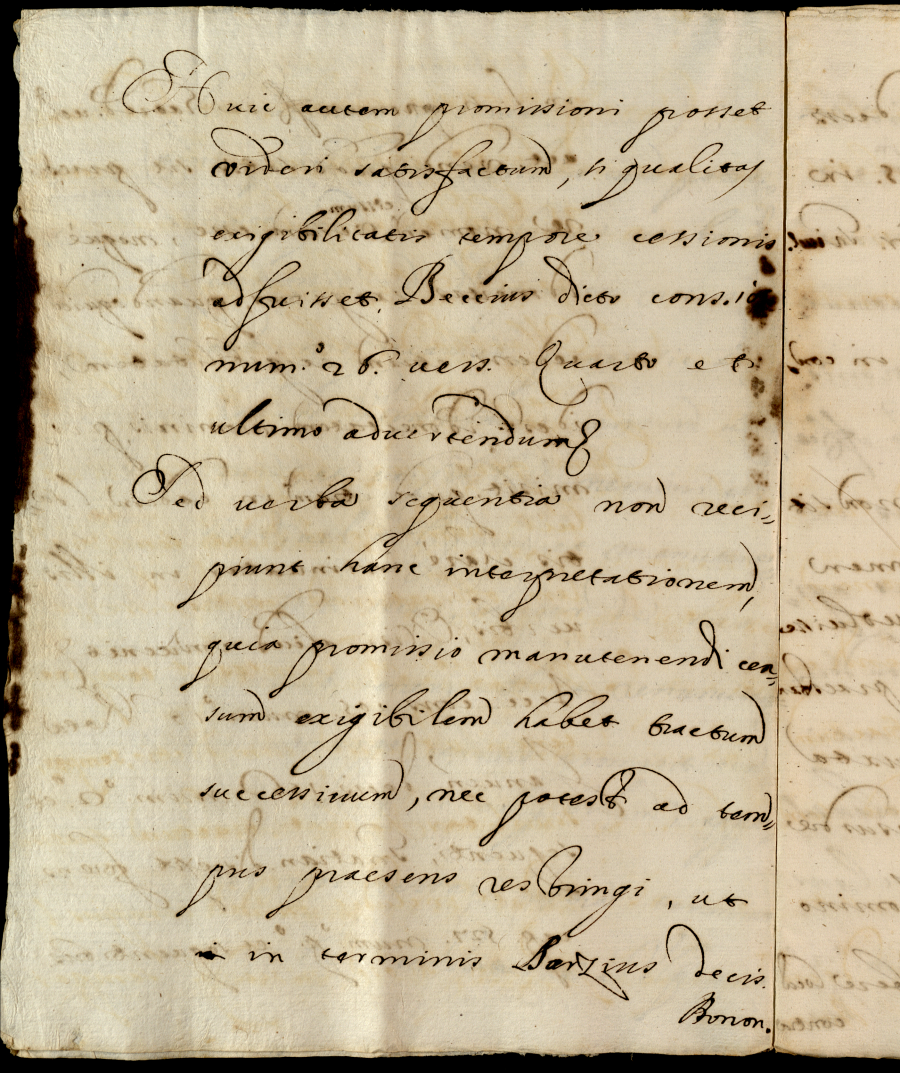 Huic autem promissioni posset
videri satisfactum, si qualitas
etiam
exigibilitatis tempore cessionis
adfuisset, Beccius dicto cons. 10
num.º 26. vers. Quarto et
ultimo advertendum
Sed verba sequentia non reci-
piunt hanc interpretationem,
quia promissio manutenendi cen-
sum exigibilem habet tractum
successivum, nec potest ad tem-
pus praesens restringi, ut
in terminis Barzius decis.
Bonon.